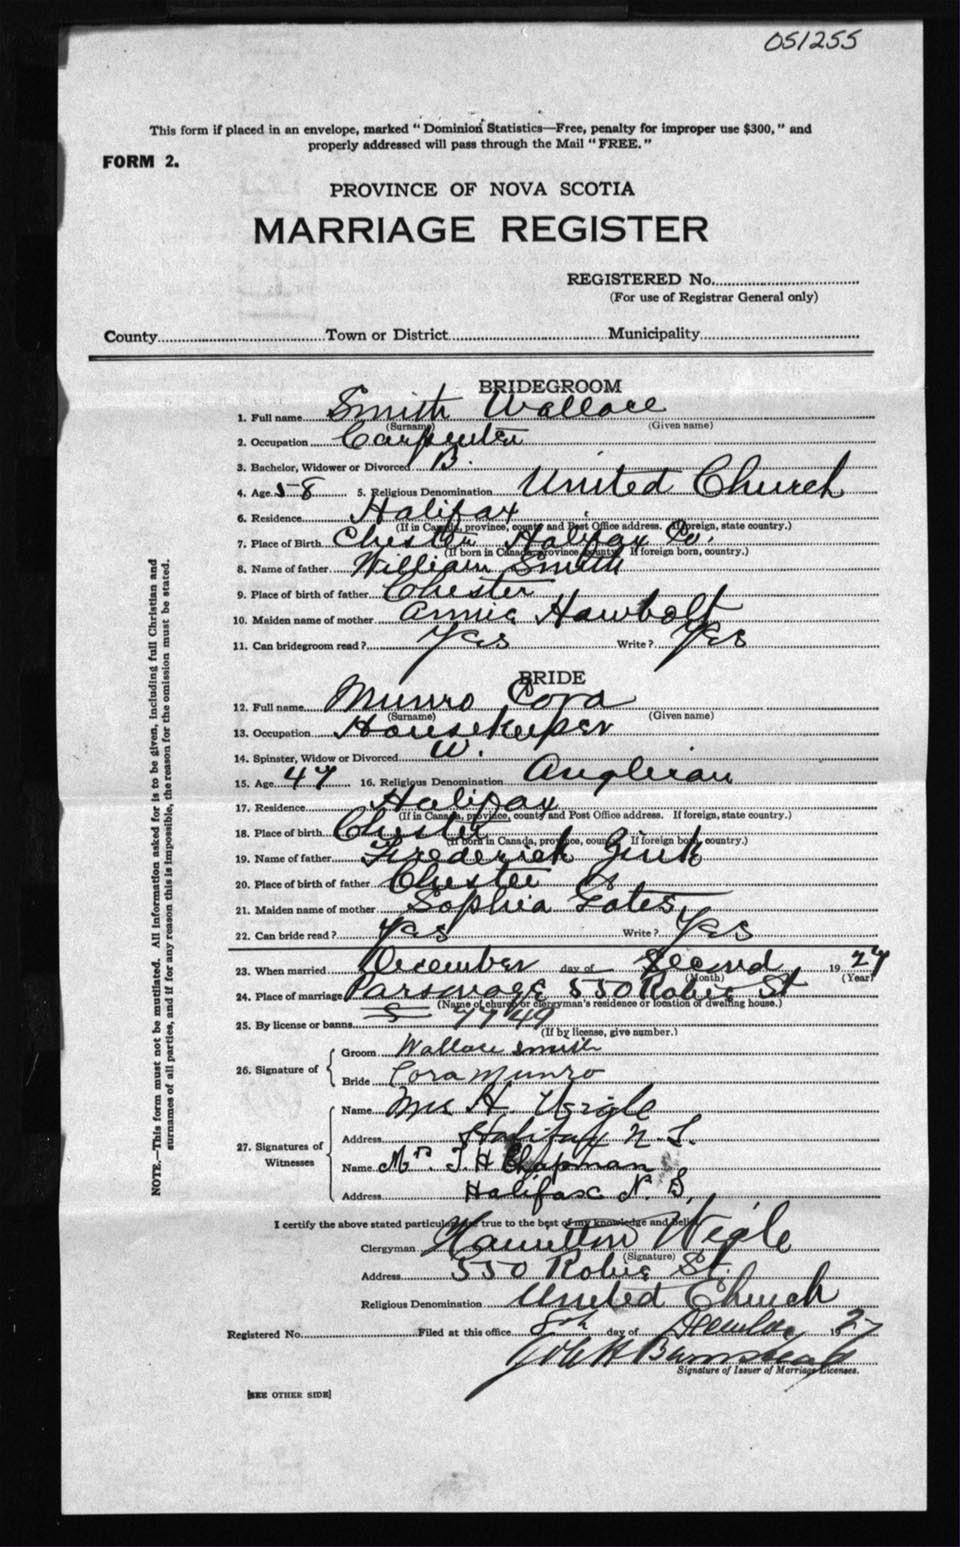 051255
This form if placed in an envelope, marked "Dominion Statistics—Free, penalty for improper use $300," and
properly addressed will pass through the Mail "FREE."
FORM 2.
PROVINCE OF NOVA SCOTIA
MARRIAGE REGISTER
REGISTERED No.
(For use of Registrar General only)
County Town or District Municipality
BRIDEGROOM
1. Full name Smith Wallace
(Surname) (Given name)
2. Occupation Carpenter
3. Bachelor, Widower or Divorced B.
4. Age 58 5. Religious Denomination United Church
6. Residence Halifax
(If in Canada, province, county and Post Office address. If foreign, state country.)
7. Place of Birth Chester Halifax Co.
(If born in Canada, province, county. If foreign born, country.)
8. Name of father William Smith
9. Place of birth of father Chester
10. Maiden name of mother Annie Hawbolt
11. Can bridegroom read? Yes Write? Yes
BRIDE
12. Full name Munro Cora
(Surname) (Given name)
13. Occupation Housekeeper
14. Spinster, Widow or Divorced W.
15. Age 47 16. Religious Denomination Anglican
17. Residence Halifax
(If in Canada, province, county and Post Office address. If foreign, state country.)
18. Place of birth Chester
(If born in Canada, province, county. If foreign born, country.)
19. Name of father Frederick Zink
20. Place of birth of father Chester
21. Maiden name of mother Sophia Gates
22. Can bride read? Yes Write? Yes
23. When married December day of Second 1927
(Month) (Year)
24. Place of marriage Parsonage 550 Robie St
(Name of church or clergyman's residence or location of dwelling house.)
25. By license or banns 7749
(If by license, give number.)
26. Signature of
Groom Wallace Smith
Bride Cora Munro
27. Signatures of Witnesses
Name Mrs H. Wigle
Address Halifax N. S.
Name Mrs. J. H Chapman
Address Halifax N. S.
I certify the above stated particulars are true to the best of my knowledge and belief.
Clergyman Hamilton Wigle
(Signature)
Address 550 Robie St.
Religious Denomination United Church
Registered No. Filed at this office 8th day of December 1927
Signature of Issuer of Marriage Licenses.
[SEE OTHER SIDE]
NOTE.—This form must not be mutilated. All information asked for is to be given, including full Christian and
surnames of all parties, and if for any reason this is impossible, the reason for the omission must be stated.